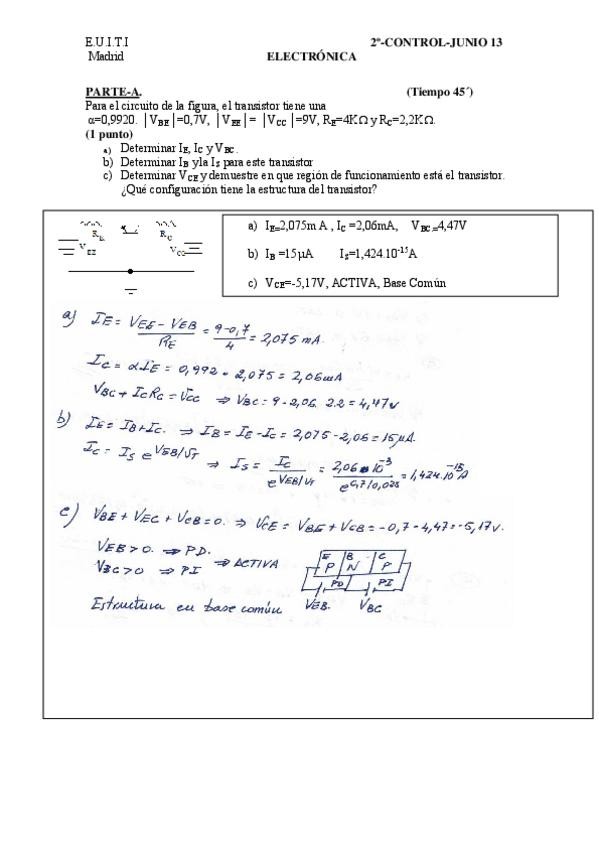 E.U.I.T.I 2º-CONTROL-JUNIO 13
Madrid ELECTRÓNICA
PARTE-A. (Tiempo 45´)
Para el circuito de la figura, el transistor tiene una
α=0,9920. │VBE│=0,7V, │VEE│= │VCC│=9V, RE=4KΩ y RC=2,2KΩ.
(1 punto)
a) Determinar IE, IC y VBC.
b) Determinar IB y la IS para este transistor
c) Determinar VCE y demuestre en que región de funcionamiento está el transistor.
¿Qué configuración tiene la estructura del transistor?
RE RC
VEE VCC
a) IE=2,075m A , IC =2,06mA, VBC=4,47V
b) IB =15µA IS=1,424.10-15A
c) VCE=-5,17V, ACTIVA, Base Común
a) IE = VEE - VEB / RE = 9-0,7 / 4 = 2,075 mA.
IC = αIE = 0,992 · 2,075 = 2,06mA
VBC + ICRC = VCC ⇒ VBC = 9 - 2,06. 2.2 = 4,47v
b) IE = IB + IC. ⇒ IB = IE - IC = 2,075 - 2,06 = 15µA.
IC = IS e VEB/VT ⇒ IS = IC / e VEB/VT = 2,06·10-3 / e 0,7/0,025 = 1,424.10-15 A
c) VBE + VEC + VCB = 0. ⇒ VCE = VBE + VCB = -0,7 - 4,47 = -5,17v.
VEB > 0. ⇒ PD.
VBC > 0 ⇒ PI ⇒ ACTIVA
E B C
P N P
PD PI
Estructura en base común VEB. VBC